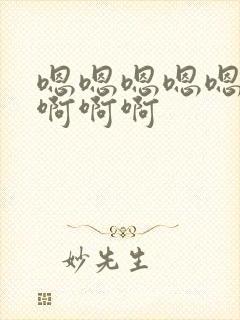 嗯嗯嗯嗯嗯
啊啊啊
妙先生